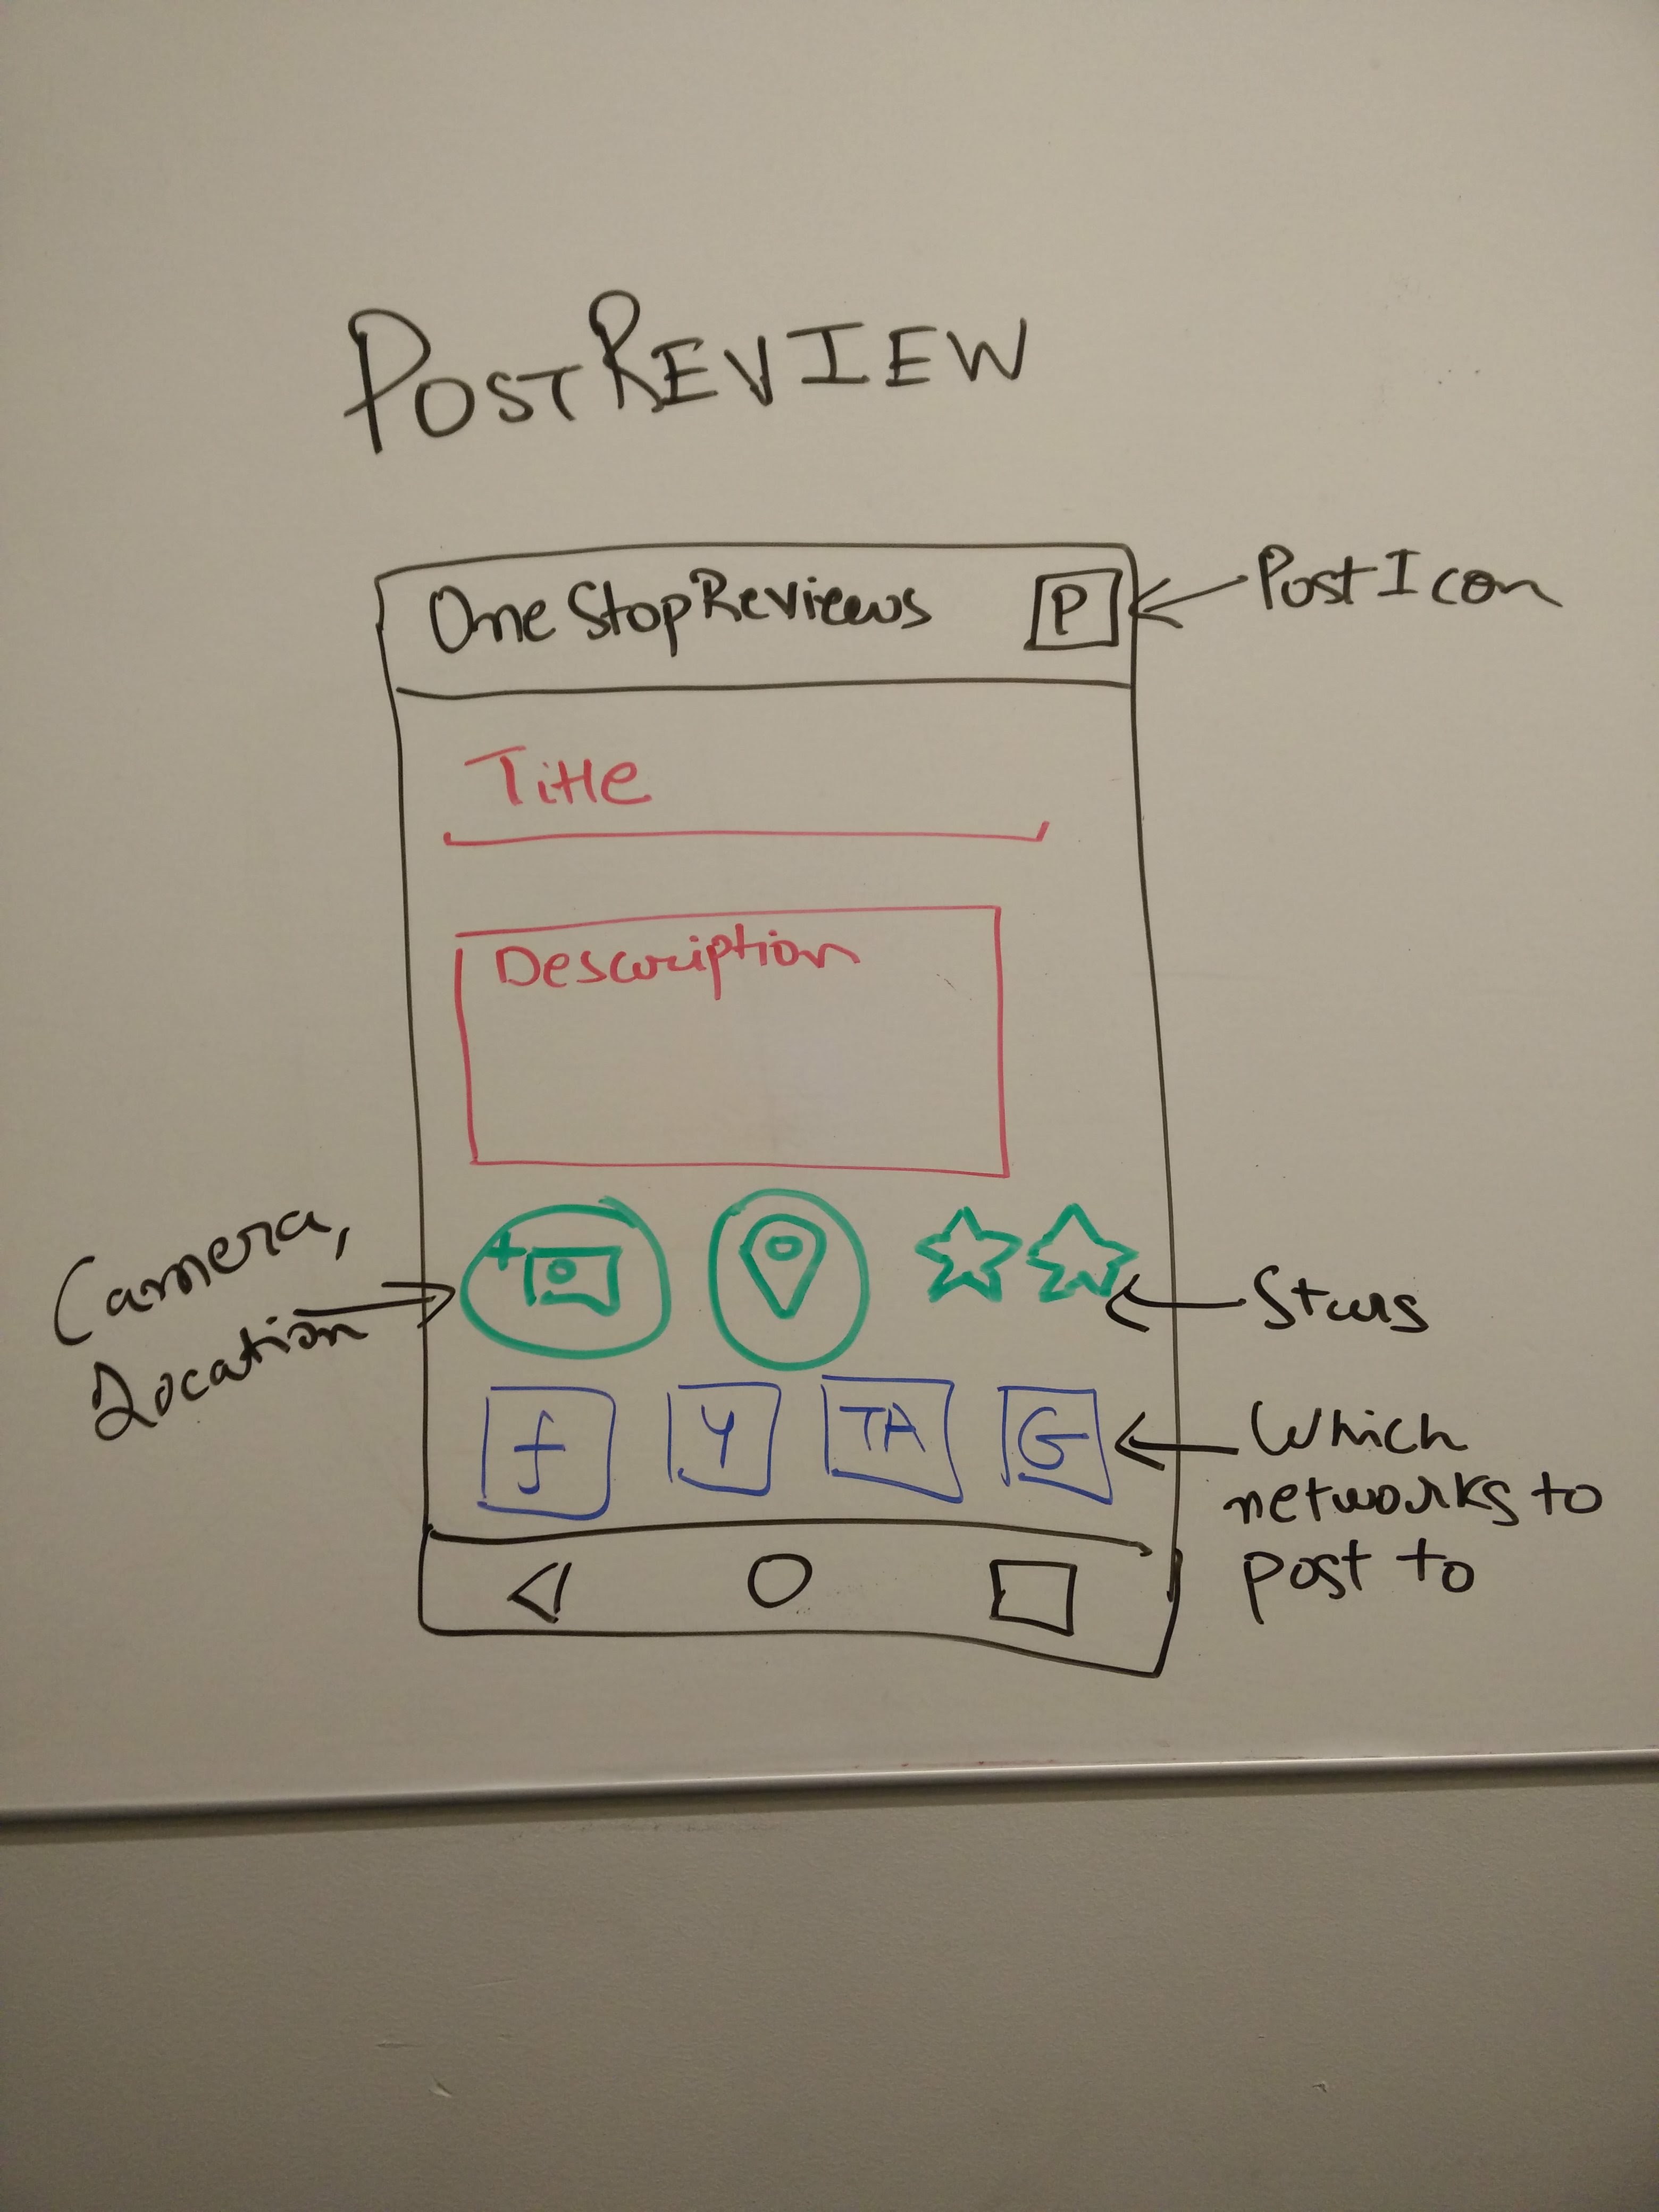 POSTREVIEW
OneStopReviews
P
Post Icon
Title
Description
Camera,
Location
Stars
f
Y
TA
G
Which
networks to
post to